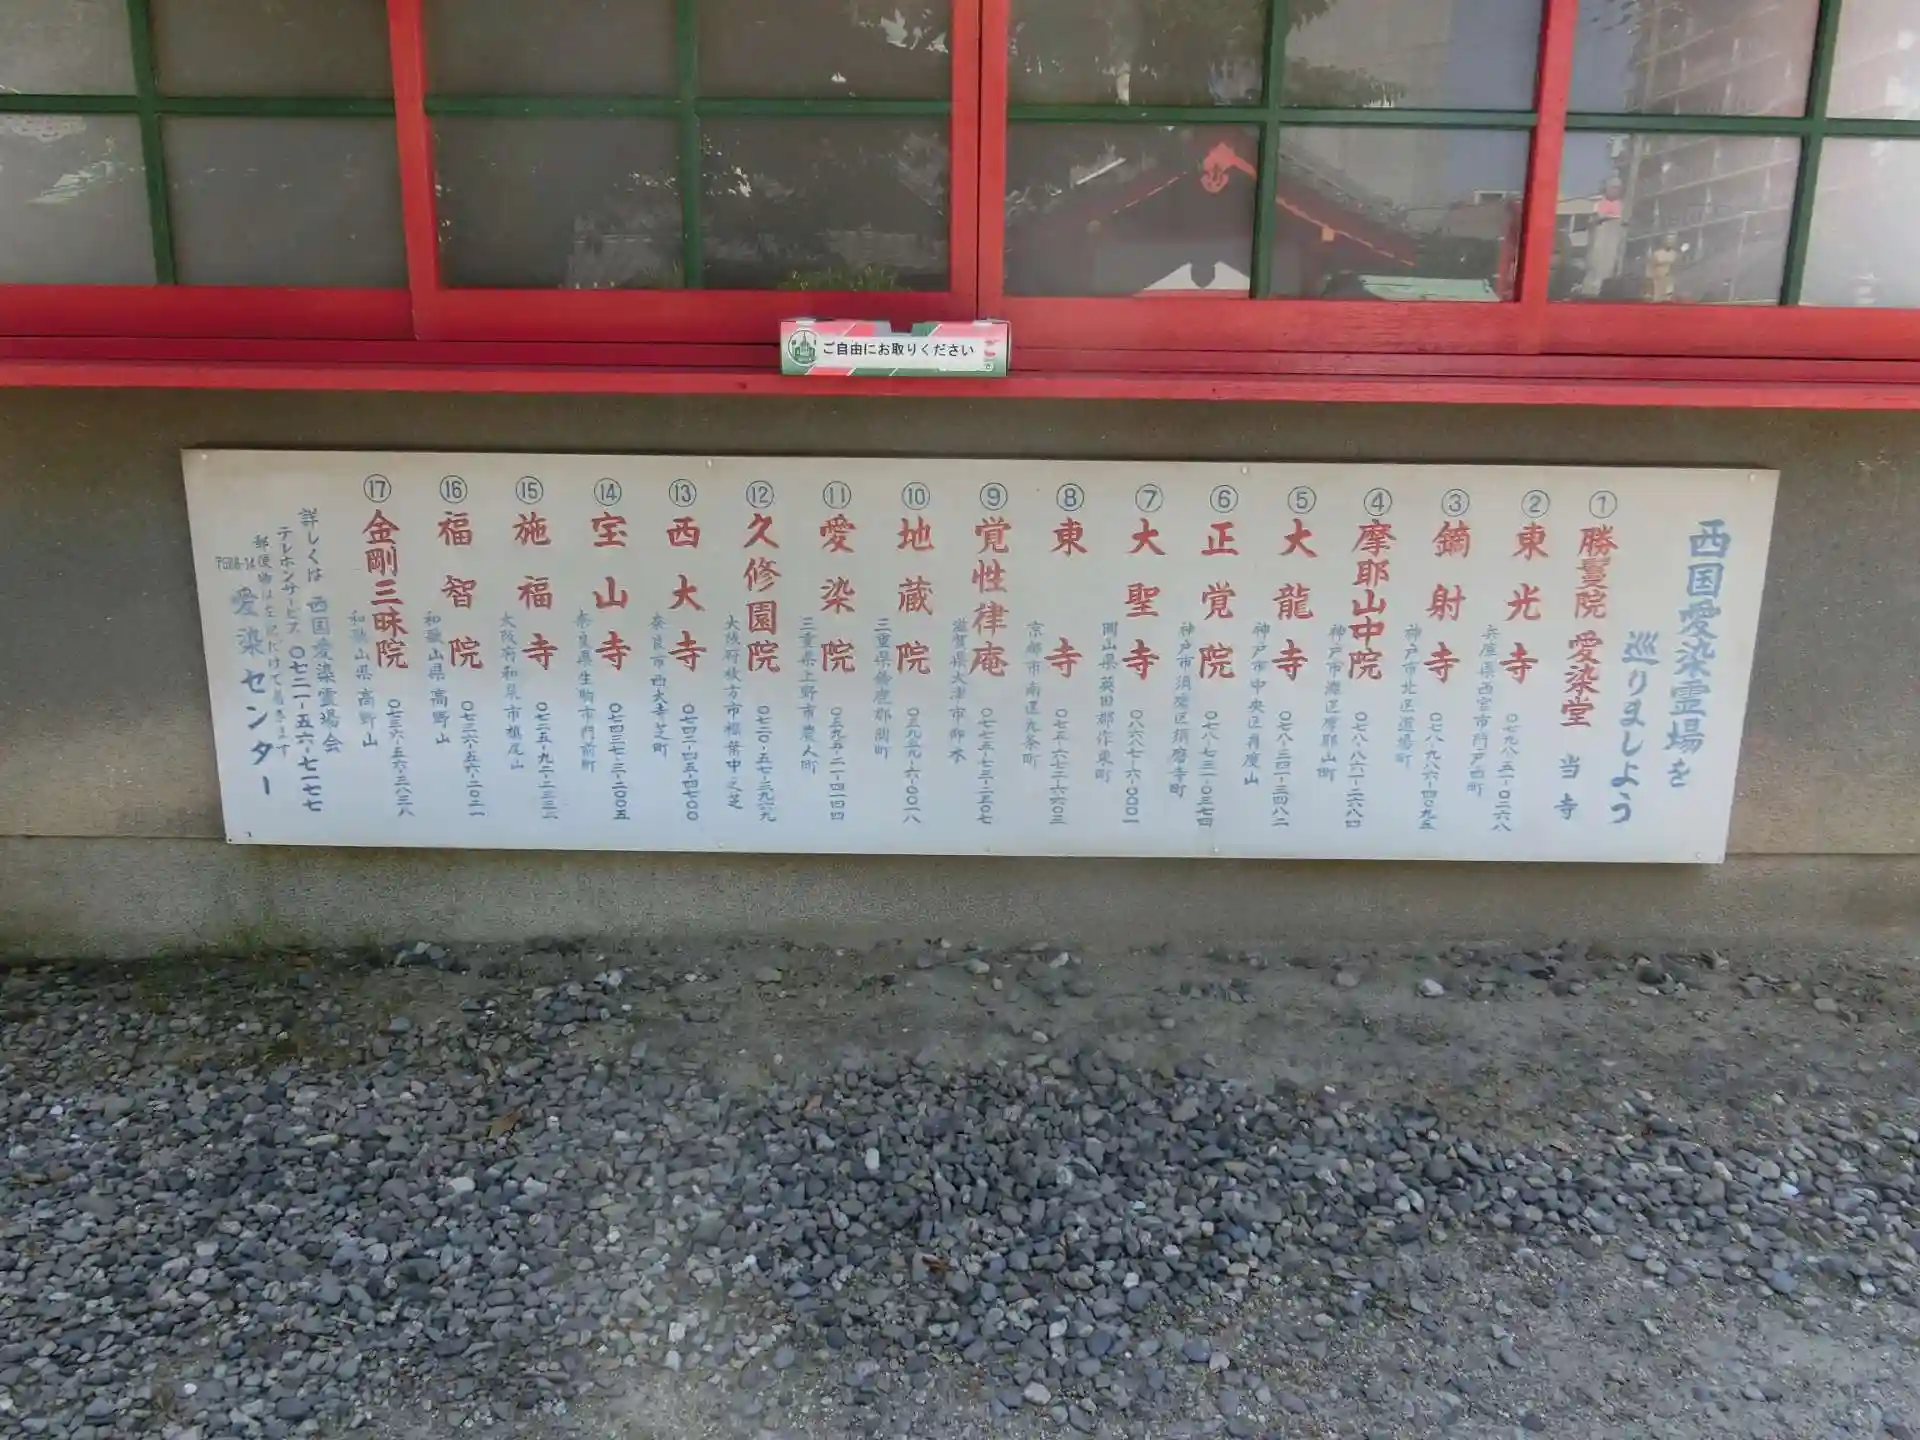 ご自由にお取りください
西国愛染霊場を
巡りましょう
① 勝鬘院 愛染堂
当寺
② 東光寺
兵庫県西宮市門戸西町
〇七九八-五一-〇二六八
③ 鏑射寺
神戸市北区道場町
〇七八-九八六-四〇九五
④ 摩耶山中院
神戸市灘区摩耶山町
〇七八-八六一-二六八四
⑤ 大龍寺
神戸市中央区再度山
〇七八-三四一-三四八二
⑥ 正覚院
神戸市須磨区須磨寺町
〇七八-七三一-〇三七四
⑦ 大聖寺
岡山県英田郡作東町
〇八六八七-六-〇〇〇一
⑧ 東寺
京都市南区九条町
〇七五-六七二-六六〇三
⑨ 覚性律庵
滋賀県大津市仰木
〇七七五-七三-二五〇七
⑩ 地蔵院
三重県鈴鹿郡関町
〇五九五九-六-〇〇一八
⑪ 愛染院
三重県上野市農人町
〇五九五-二一-四一四四
⑫ 久修園院
大阪府枚方市楠葉中之芝
〇七二〇-五七-三九六九
⑬ 西大寺
奈良市西大寺芝町
〇七四二-四五-四七〇〇
⑭ 宝山寺
奈良県生駒市門前町
〇七四三七-三-二〇〇五
⑮ 施福寺
大阪府和泉市槇尾山
〇七二五-九二-二三三二
⑯ 福智院
和歌山県 高野山
〇七三六-五六-二〇二一
⑰ 金剛三昧院
和歌山県 高野山
〇七三六-五六-三八三八
詳しくは 西国愛染霊場会
テレホンサービス 〇七二一-五六-七一七七
郵便物は左記だけで着きます
〒586-14 愛染センター